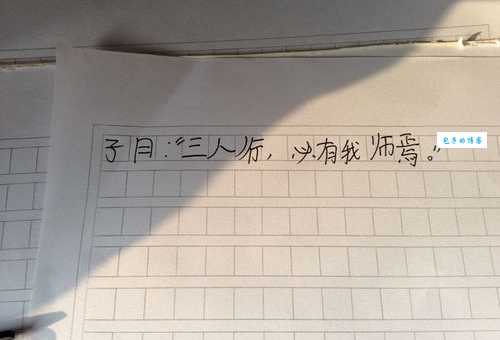 子曰:“三人行，必有我师焉。”
包子的博客